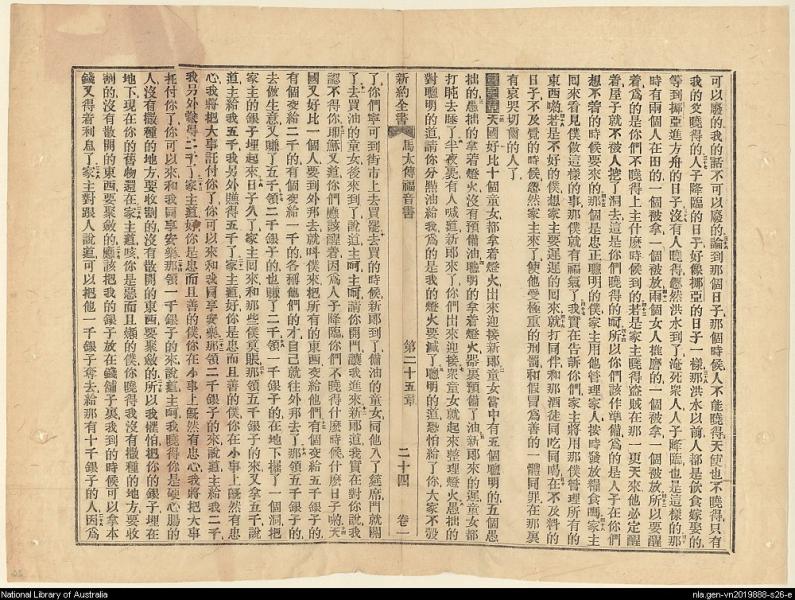 可以廢的我的話不可以廢的論到那個日子那個時候人不能曉得天使也不曉得只有
我的父曉得的人子降臨的日子好像挪亞的日子一樣那洪水以前人都是飲食嫁娶的
等到挪亞進方舟的日子沒有人曉得忽然洪水到了淹死衆人人子降臨也是這樣的那
時有兩個人在田的一個被拿一個被放兩個女人推磨的一個被拿一個被放所以要醒
着為的是你們不曉得上主什麼時候到的若是家主曉得盜賊在那一更天來他必定醒
着屋子就不被人挖了洞去這是你們曉得的所以你們該作準備為的是人子在你們
想不着的時候要來的那個是忠正聰明的僕家主用他管理家人按時發放糧食嗎家主
回來看見僕做這樣的事那僕就有福氣了我實在告訴你們家主將用那僕管理所有的
東西喲若是不好的僕想家主要遲遲的回來就打同伴和那酒徒同吃同喝在不及料的
日子不及覺的時候忽然家主來了使他受極重的刑罰和假冒為善的一體同罪在那裏
有哀哭切齒的人了
天國好比十個童女都拿着燈火出來迎接新郎童女當中有五個聰明的五個愚
拙的愚拙的拿着燈火沒有預備油聰明的拿着燈火器裏預備了油新郎來的遲童女都
打盹去睡了半夜裏有人喊道新郎來了你們出來迎接衆童女就起來整理燈火愚拙的
對聰明的道請你分點油給我為的是我的燈火要滅了聰明的道恐怕給了你大家不彀
新約全書
馬太傳福音書
第二十五章
二十四
卷一
了你們寧可到街市上去買罷去買的時候新郎到了備油的童女同他入了筵席門就關
了去買油的童女後來到了說道主呵主呵請你開門讓我進來新郎道我實在對你說我
認不得你耶穌又道你們應該醒着因為人子降臨你們不曉得什麼時候什麼日子喲天
國又好比一個人要到外邦去就叫僕來把所有的東西交給他們有個交給五千銀子的
有個交給二千的有個交給一千的各稱他們的才自己就往外邦去了那領五千銀子的
去做生意又賺了五千領二千銀子的也賺了二千領一千銀子的在地下掘了一個洞把
家主的銀子埋起來日子久了家主回來和那些僕算賬那領五千銀子的來又拿五千說
道主給我五千我另外賺得五千了家主道好你是忠而且善的僕你在小事上旣然有忠
心我將把大事託付你了你可以來和我同享安樂那領二千銀子的來說道主給我二千
我另外賺得二千了家主道好你是忠而且善的僕你在小事上旣然有忠心我將把大事
托付你了你可以來和我同享安樂那領一千銀子的來說道主呵我曉得你是硬心腸的
人沒有撒種的地方要收割的沒有散開的東西要聚斂的所以我懼怕把你的銀子埋在
地下現在你的舊物還在家主道咳你是惡而且懶的僕你曉得我沒有撒種的地方要收
割的沒有散開的東西要聚斂的應該把我的銀子放在錢舖子裏我到的時候可以拿本
錢又得着利息了家主對跟人說道可以把他一千銀子奪去給那有十千銀子的人因為
National Library of Australia
nla.gen-vn2019888-s26-e